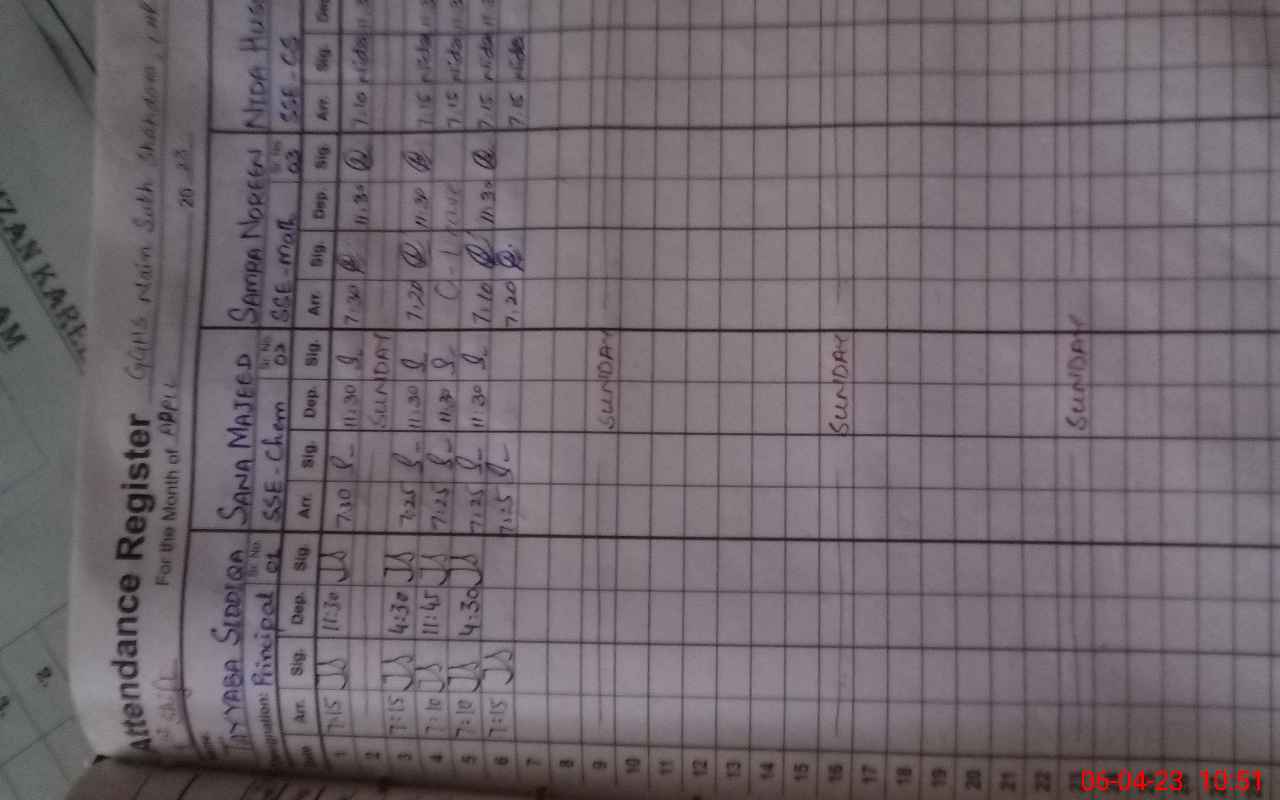 Attendance Register GGHS Main Suth
For the Month of April 2023
TAYYABA SIDDIQA SANA MAJEED SAMRA NOREEN NIDA
Designation: Principal Sr. No. 01 SSE-Chem Sr. No. 02 SSE-Math Sr. No. 03 SSE-CS
Date Arr. Sig. Dep. Sig. Arr. Sig. Dep. Sig. Arr. Sig. Dep. Sig. Arr. Sig. Dep.
1 7:15 11:30 7:20 11:30 7:30 11:30 7:10 Nida
2 SUNDAY
3 7:15 4:30 7:25 11:30 7:20 11:30 7:15 Nida
4 7:10 11:45 7:25 11:30 C-leave 7:15 Nida
5 7:10 4:30 7:25 11:30 7:10 11:30 7:15 Nida
6 7:15 7:25 7:20 7:15 Nida
7
8
9 SUNDAY
10
11
12
13
14
15
16 SUNDAY
17
18
19
20
21
22
23 SUNDAY
06-04-23 10:51